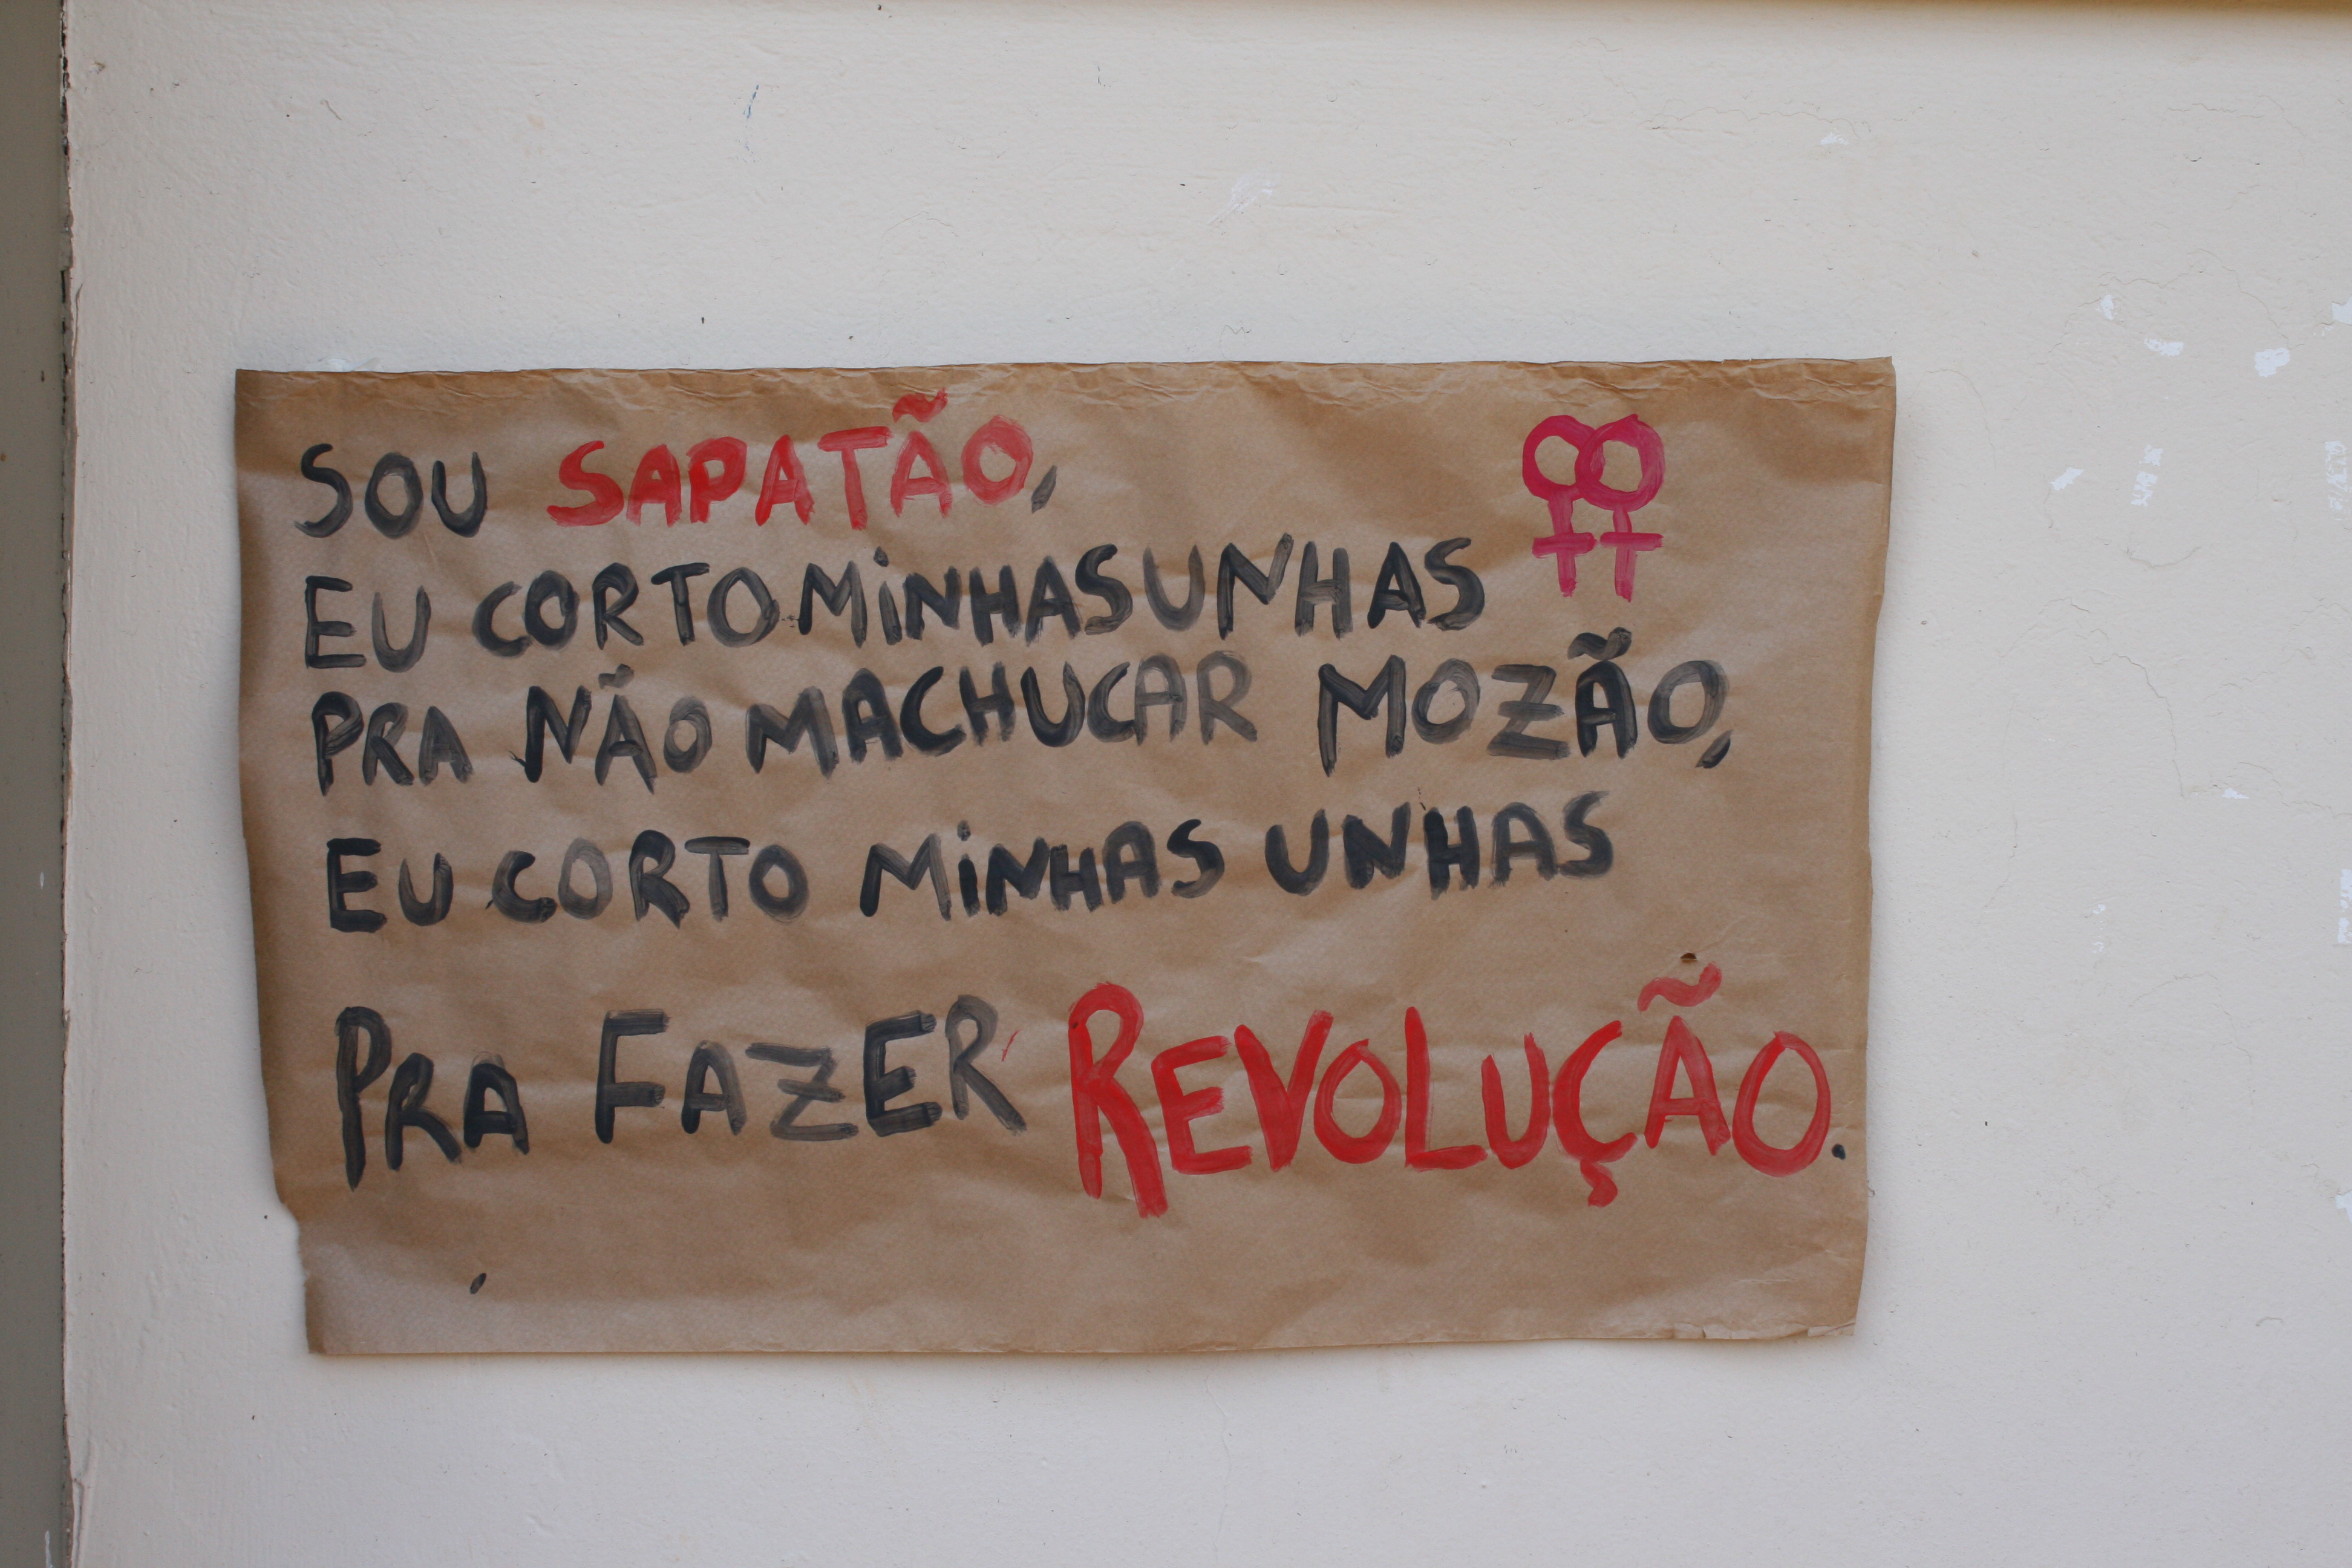 SOU SAPATÃO,
EU CORTO MINHAS UNHAS
PRA NÃO MACHUCAR MOZÃO,
EU CORTO MINHAS UNHAS
PRA FAZER REVOLUÇÃO.